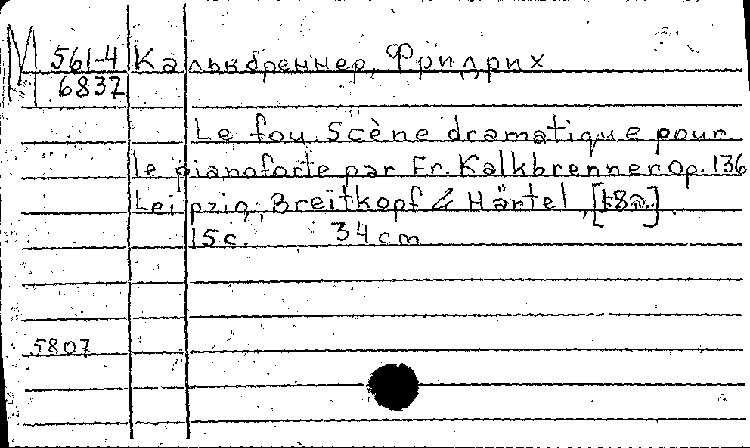 М 561-4 Калькбреннер, Фридрих
6832
Le fou. Scène dramatique pour
le pianoforte par Fr. Kalkbrenner Op. 136
Leipzig, Breitkopf & Härtel,
15 с. 34 cm
5807